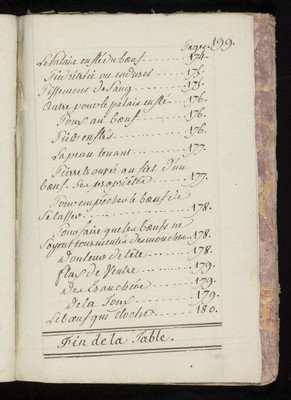 Pages. 199.
Le palais enflé du bœuf ........ 174.
Pied retréci ou endurci ........ 175.
Pissement de sang ........ 175.
Autre pour le palais enflé ... 176.
Toux au bœuf ........ 176.
Pieds enflés ........ 176.
La peau tenant ........ 177.
Pierre trouvée au fiel d'un
bœuf. Ses propriétés ........ 177.
Pour empêcher le bœuf de
se lasser ........ 178.
Pour faire que les bœufs ne
soyent tourmentés des mouches. 178.
Douleur de tête ........ 178.
Flux de Ventre ........ 179.
Des tranchées ........ 179.
De la Toux ........ 179.
Le bœuf qui cloche ........ 180.
Fin de la Table.